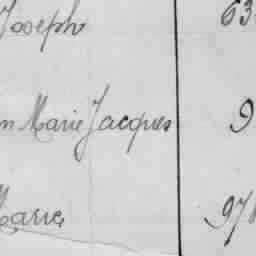 Joseph 63
n Marie Jacques 9
Marie 97